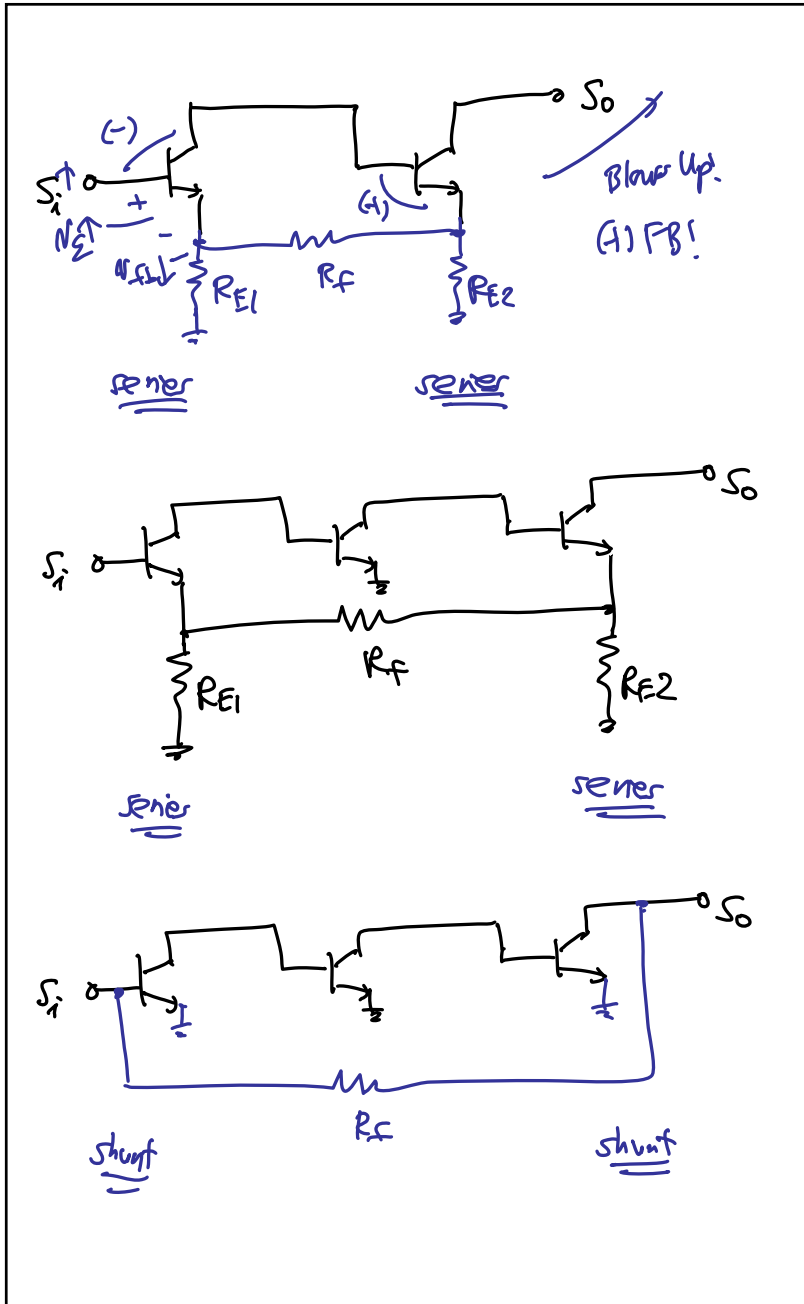 S₀
(-)
Sᵢ ↑
+
(+)
Blows Up!
-
(+) FB!
Rf
RE1
RE2
series
series
S₀
Sᵢ
Rf
RE1
RE2
series
series
S₀
Sᵢ
Rf
shunt
shunt